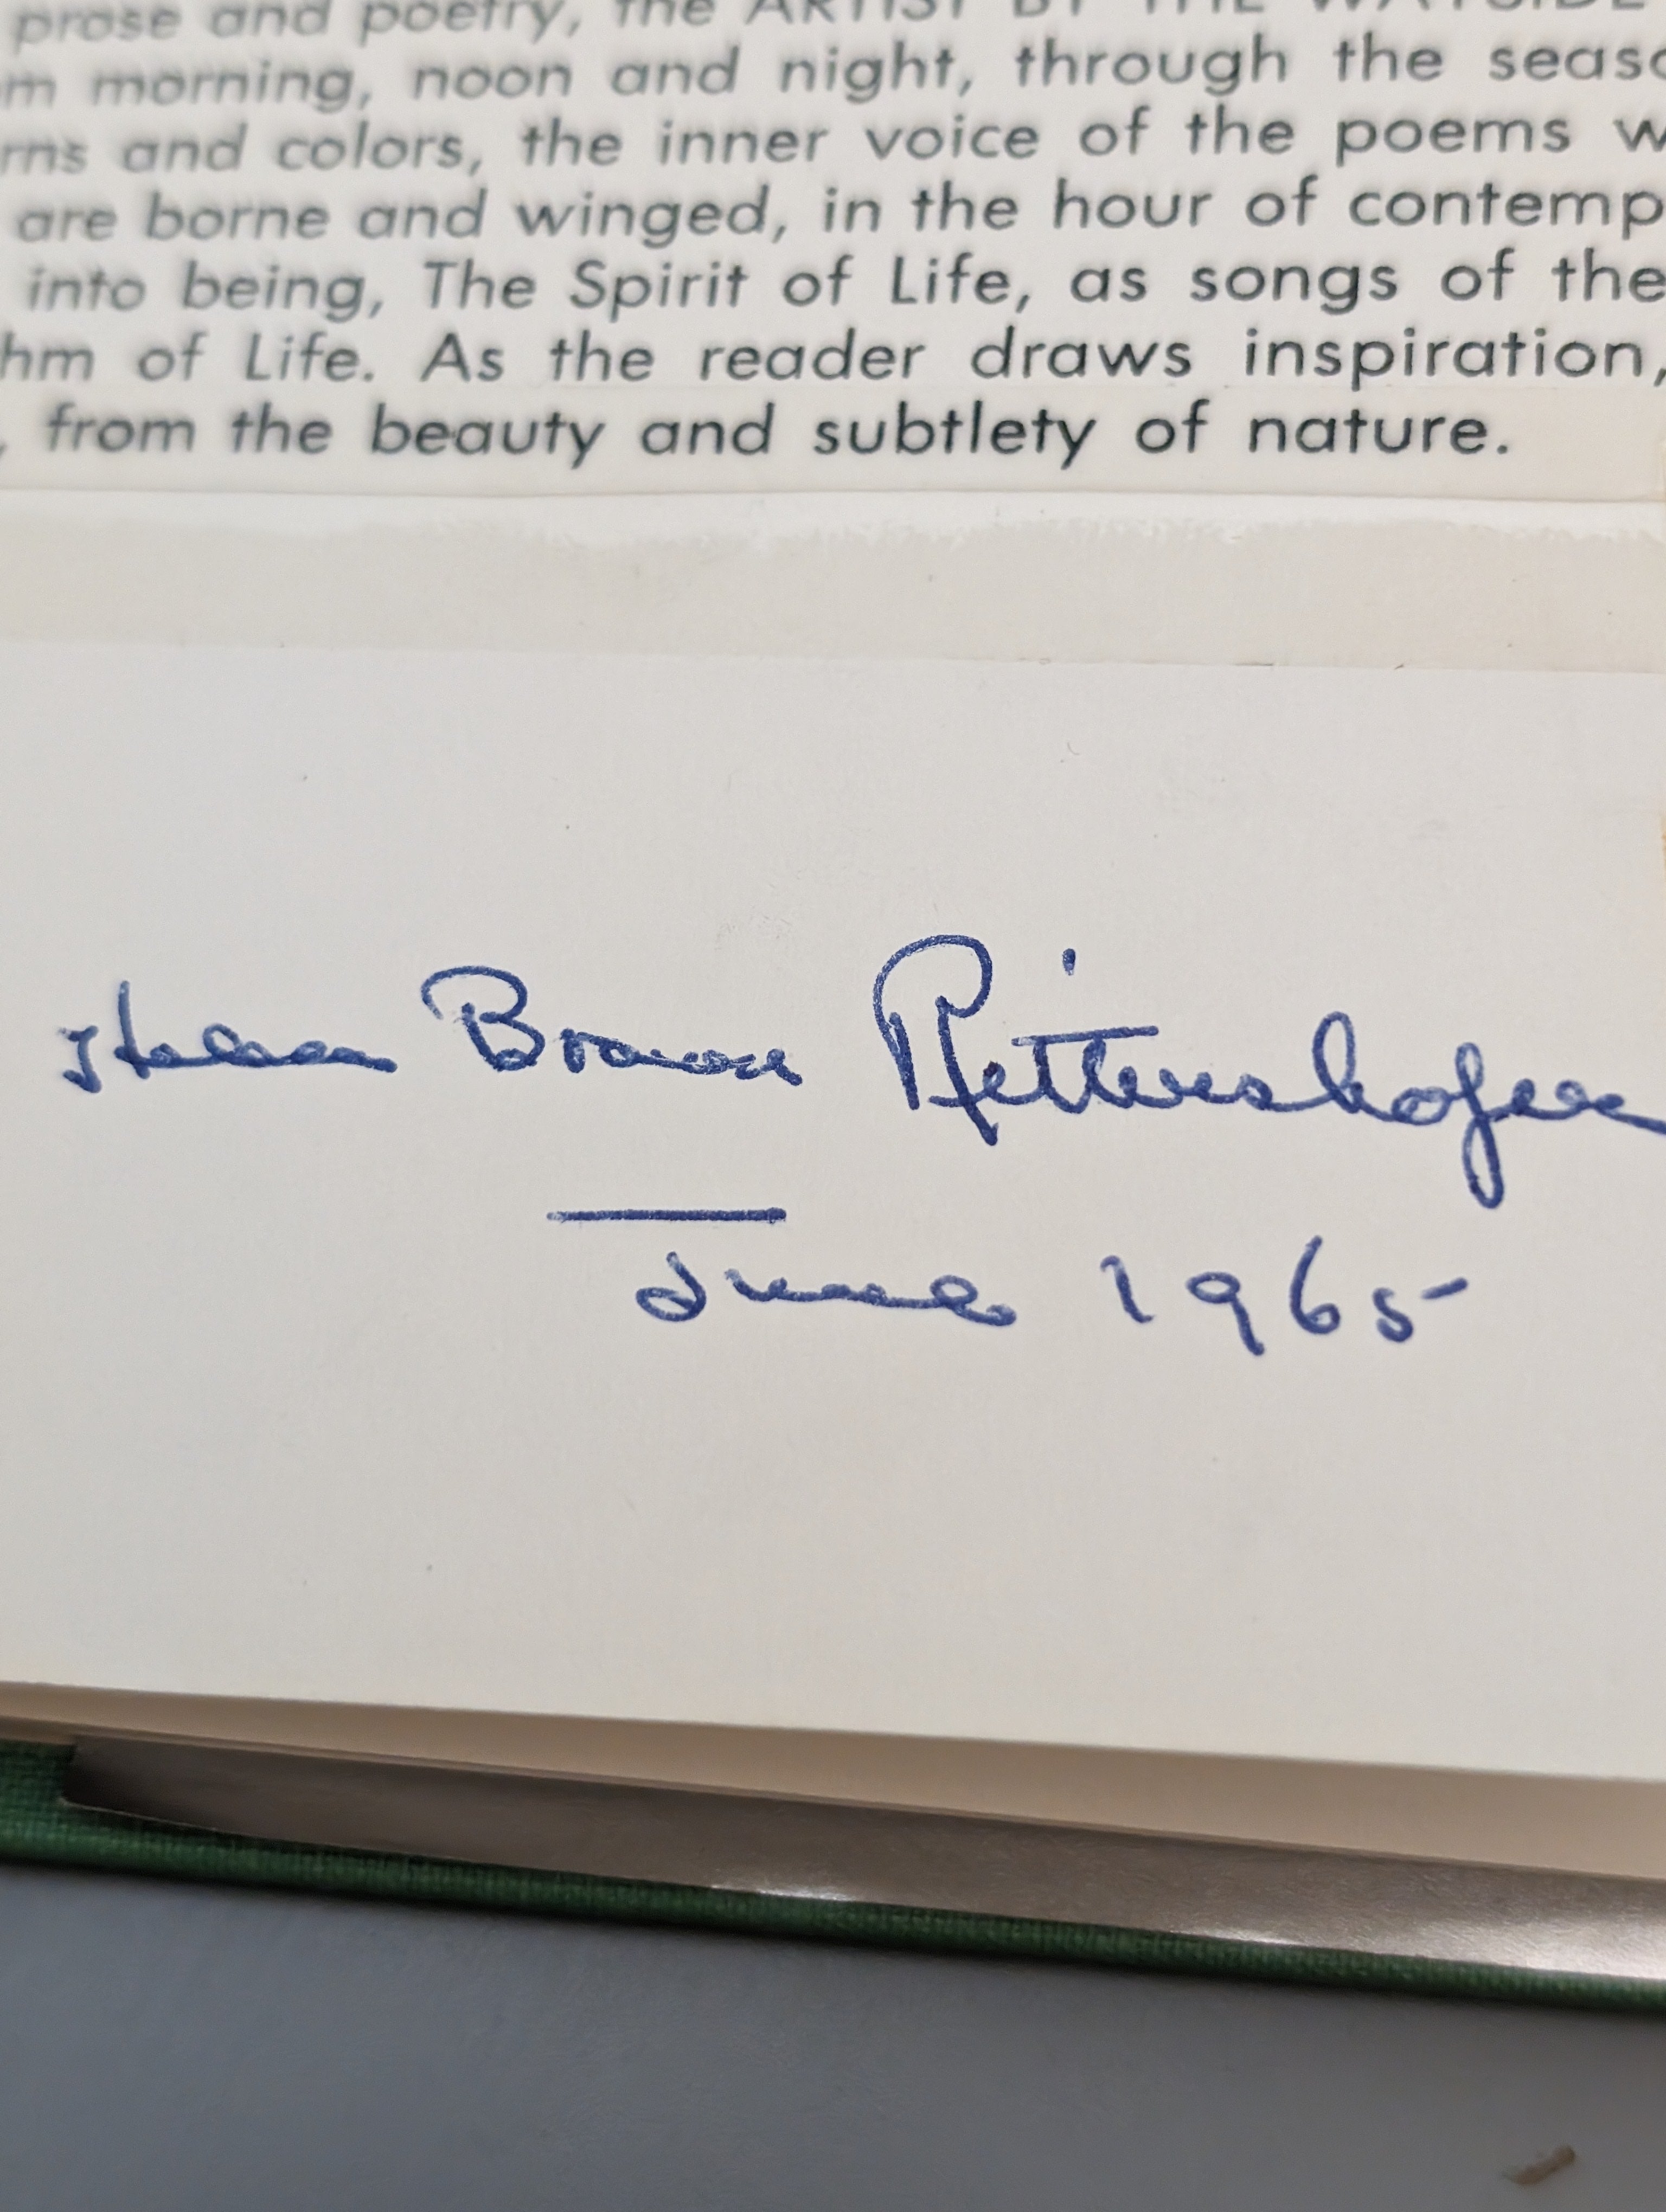 prose and poetry, the ARTIST BY THE WAYSIDE
m morning, noon and night, through the seaso
rms and colors, the inner voice of the poems w
are borne and winged, in the hour of contemp
into being, The Spirit of Life, as songs of the
hm of Life. As the reader draws inspiration,
, from the beauty and subtlety of nature.
Helen Brown
June 1965